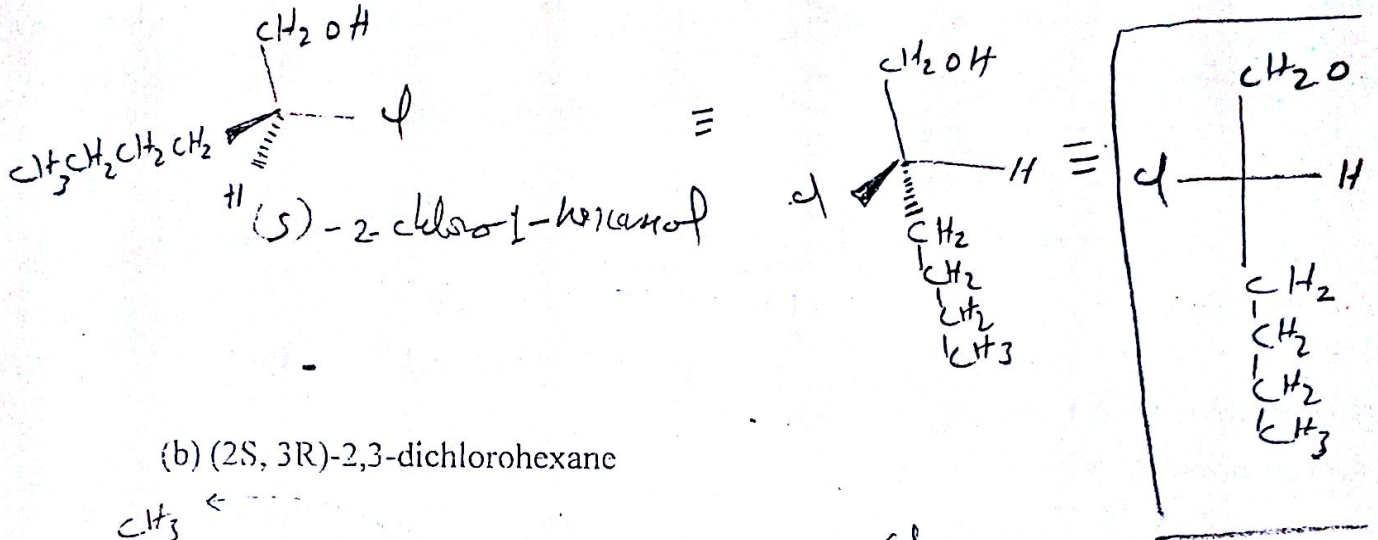 CH2OH
CH3CH2CH2CH2
Cl
H
(S)-2-chloro-1-hexanol
≡
CH2OH
Cl
H
CH2
CH2
CH2
CH3
≡
CH2O
Cl
H
CH2
CH2
CH2
CH3
(b) (2S, 3R)-2,3-dichlorohexane
CH3